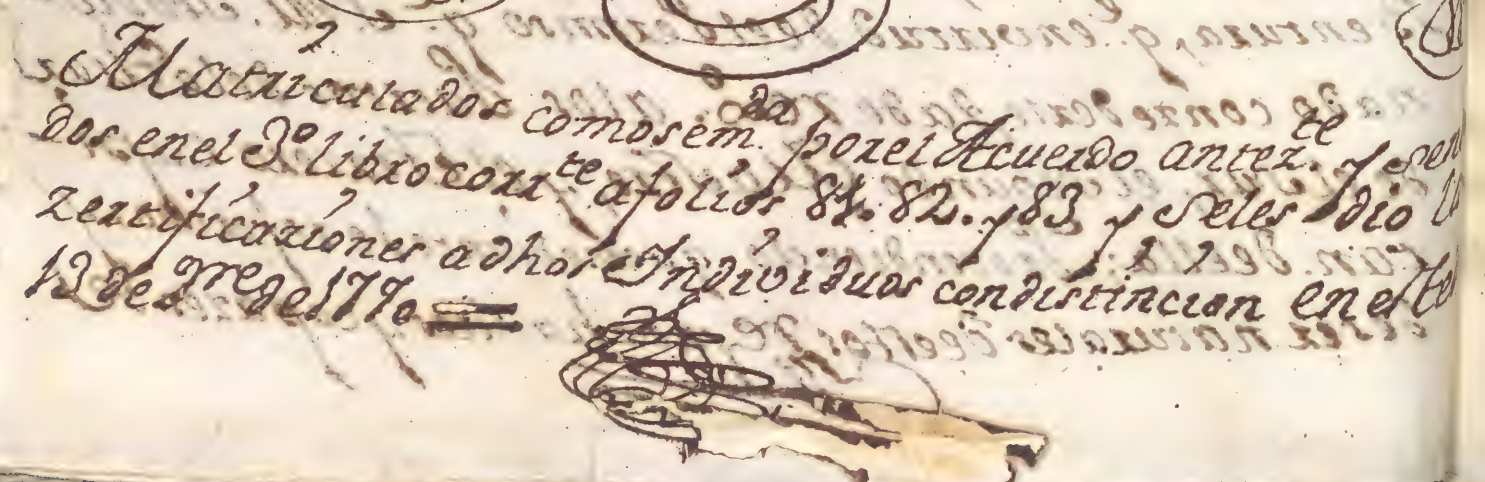 Matriculados como sem.da por el Acuerdo anter.te y Sen
dos en el 3º libro corr.te a folios 81. 82. y 83 y Seles dio
zertificaziones adhos Individuos con distincion en el
13 de 9re de 1770 =